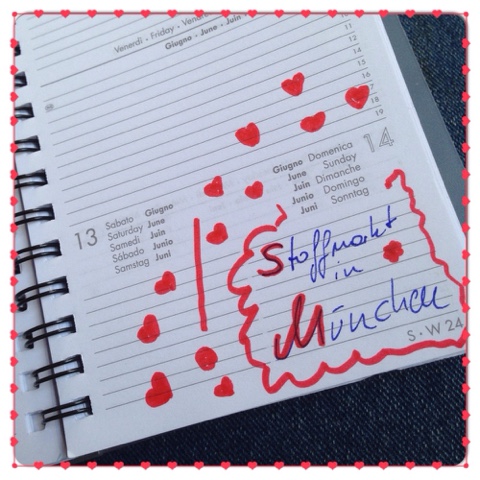 Venerdì • Friday • Vendre
Giugno • June • Juin
10
11
12
14
15
16
17
18
19
13
Sabato Giugno
Saturday June
Samedi Juin
Sábado Junio
Samstag Juni
Giugno Domenica
June Sunday
Juin Dimanche
Junio Domingo
Juni Sonntag
14
Stoffmarkt
in
München
S • W 24